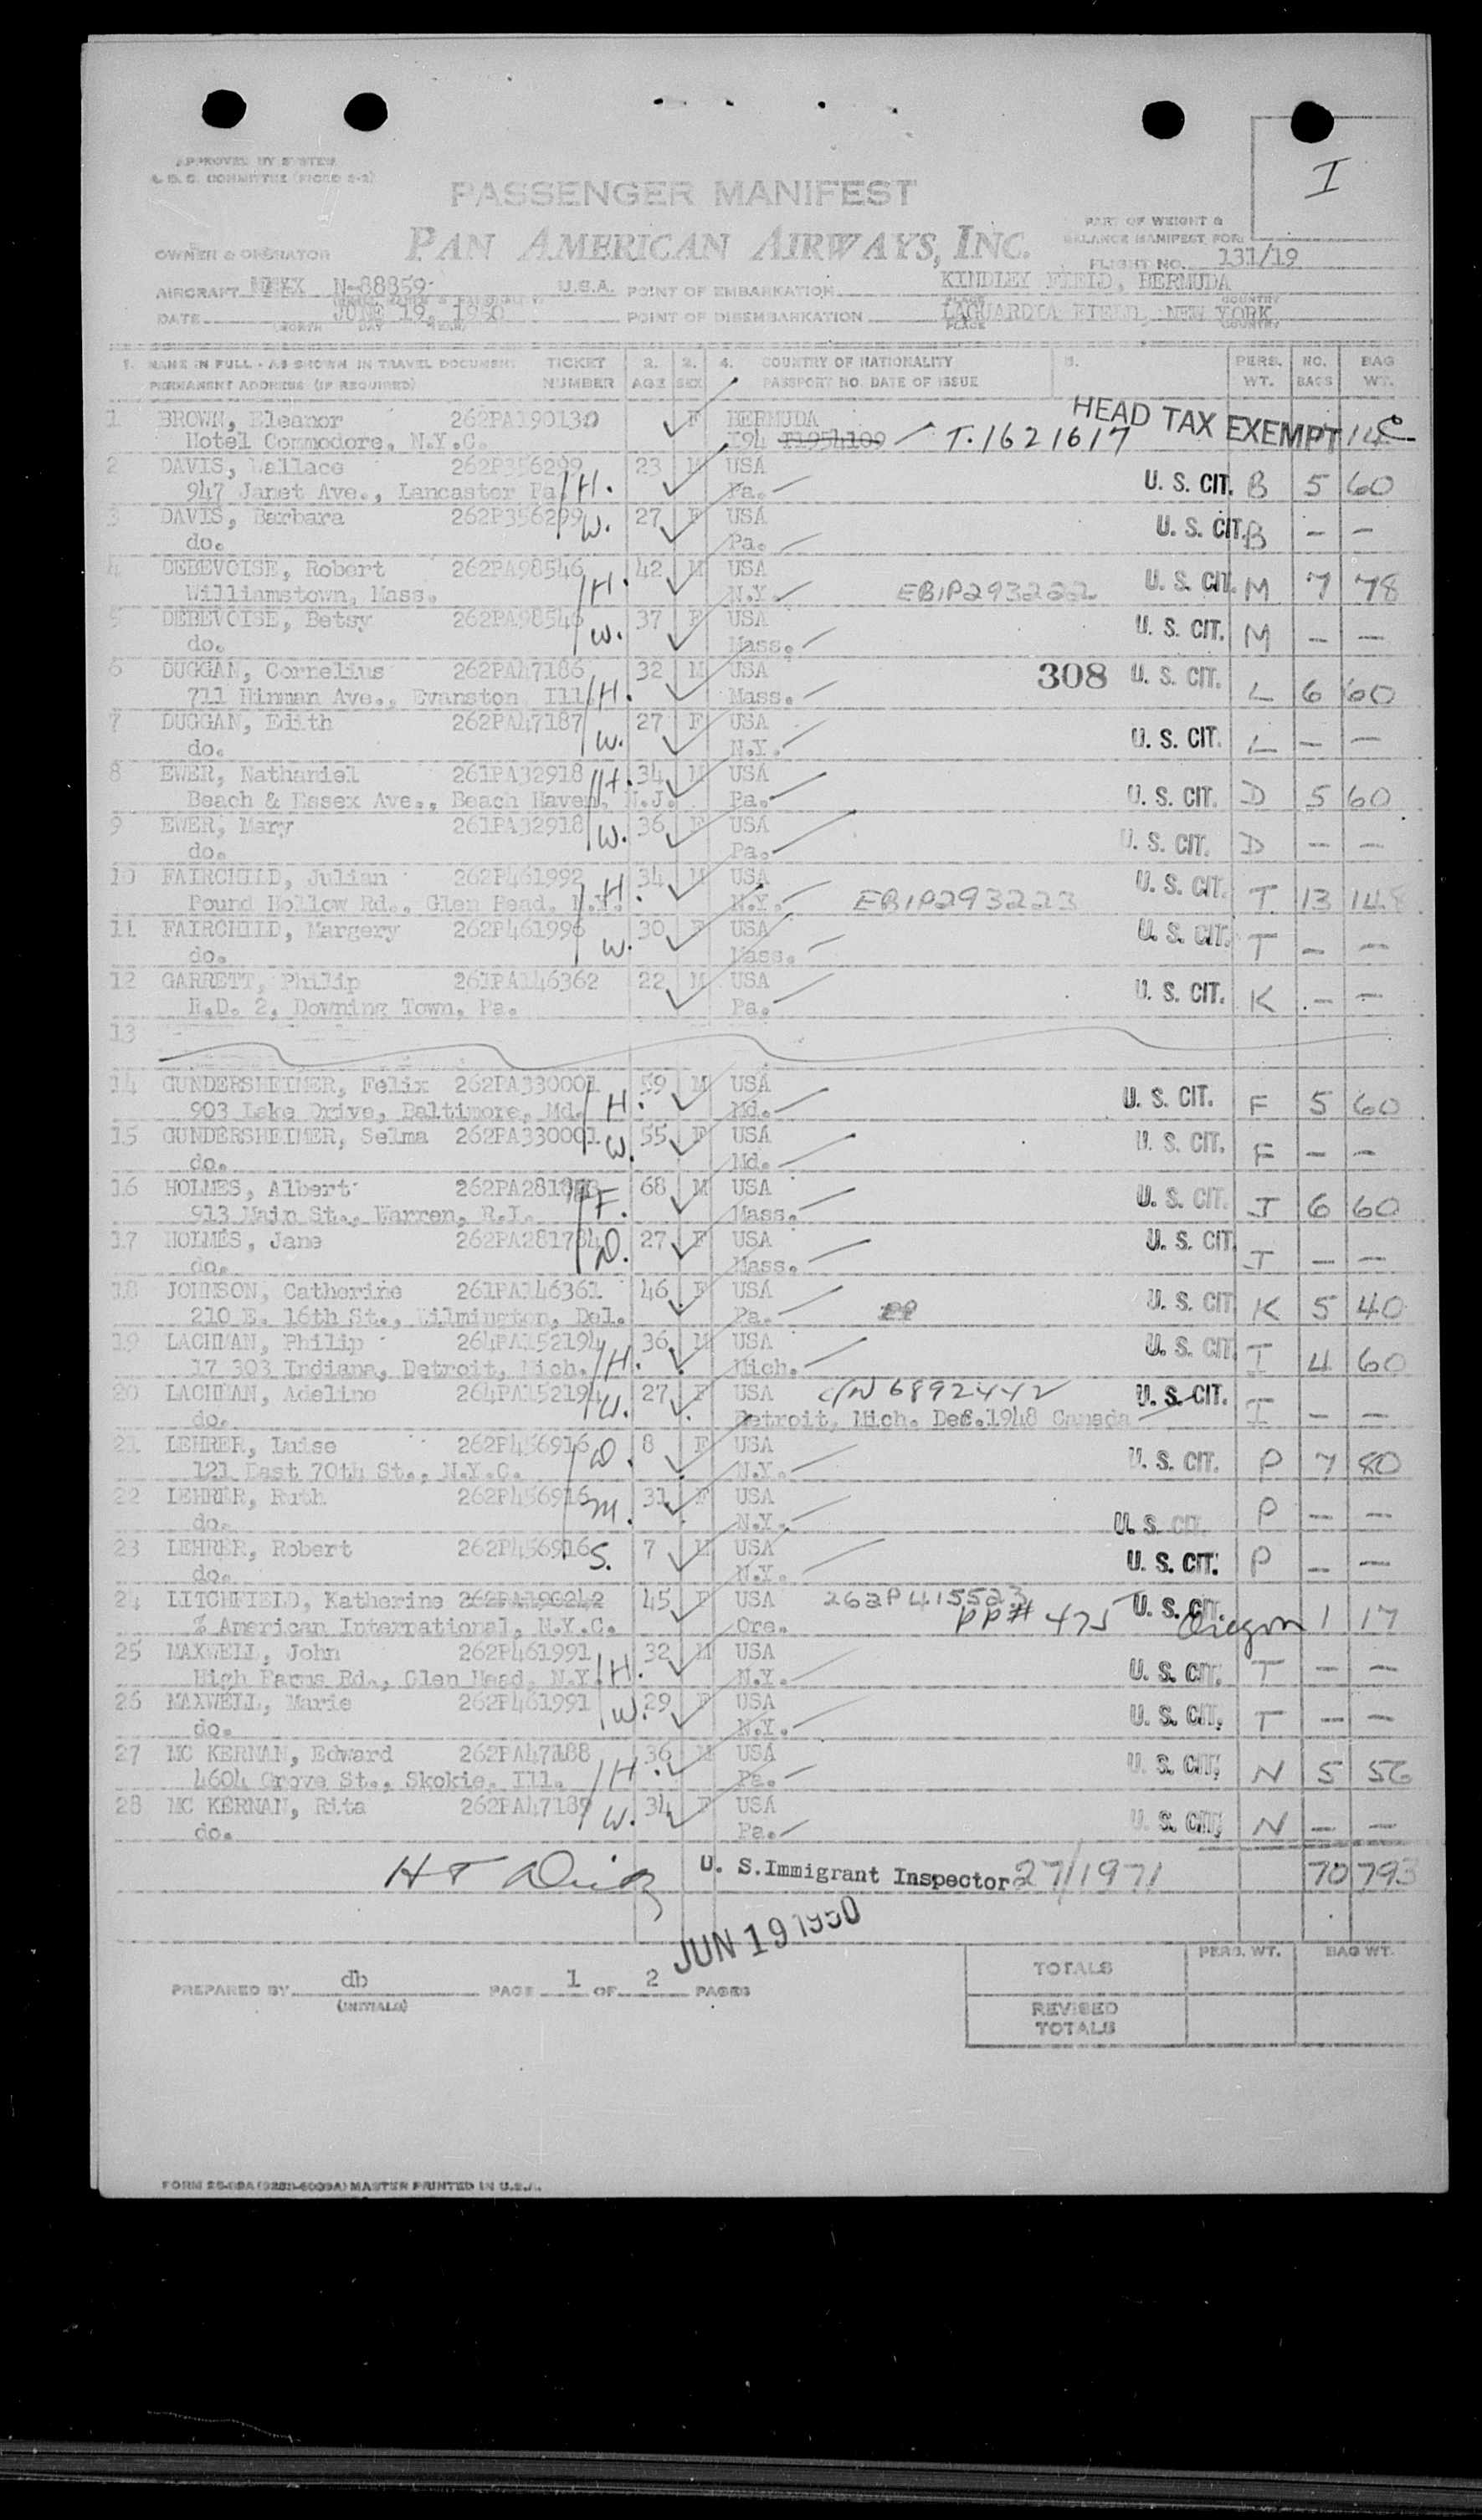 APPROVED BY SYSTEM
PASSENGER MANIFEST
I
PART OF WEIGHT &
BALANCE MANIFEST FOR
PAN AMERICAN AIRWAYS, INC.
OWNER & OPERATOR
FLIGHT NO. 131/19
AIRCRAFT N-88859 U.S.A. POINT OF EMBARKATION KINDLEY FIELD, BERMUDA
PLACE COUNTRY
DATE JUNE 19, 1950 POINT OF DISEMBARKATION LAGUARDIA FIELD, NEW YORK
MONTH DAY YEAR PLACE COUNTRY
1. NAME IN FULL - AS SHOWN IN TRAVEL DOCUMENT TICKET 2. 3. 4. COUNTRY OF NATIONALITY 5. PERS. NO. BAG
PERMANENT ADDRESS (IF REQUIRED) NUMBER AGE SEX PASSPORT NO. DATE OF ISSUE WT. BAGS WT.
1 BROWN, Eleanor 262PA190130 F BERMUDA HEAD TAX EXEMPT
Hotel Commodore, N.Y.C. I94 T1954109 T.1621617
2 DAVIS, Wallace 262P356299 23 M USA
947 Janet Ave., Lancaster Pa. H. Pa. U. S. CIT. B 5 60
3 DAVIS, Barbara 262P356299 W. 27 F USA U. S. CIT. B — —
do. Pa.
4 DEBEVOISE, Robert 262PA98546 42 M USA
Williamstown, Mass. H. N.Y. EBIP293222 U. S. CIT. M 7 78
5 DEBEVOISE, Betsy 262PA98546 37 F USA U. S. CIT. M — —
do. W. Mass.
6 DUGGAN, Cornelius 262PA47186 32 M USA 308 U. S. CIT.
711 Hinman Ave., Evanston Ill. H. Mass. L 6 60
7 DUGGAN, Edith 262PA47187 27 F USA
do. W. N.Y. U. S. CIT. L — —
8 EWER, Nathaniel 261PA32918 H. 34 M USA
Beach & Essex Ave., Beach Haven, N.J. Pa. U. S. CIT. D 5 60
9 EWER, Mary 261PA32918 W. 36 F USA
do. Pa. U. S. CIT. D — —
10 FAIRCHILD, Julian 262P461992 H. 34 M USA U. S. CIT.
Pound Hollow Rd., Glen Head, N.Y. N.Y. EBIP293223 T. 13 148
11 FAIRCHILD, Margery 262P461996 30 F USA U. S. CIT. T — —
do. W. Mass.
12 GARRETT, Philip 261PA146362 22 M USA
R.D. 2, Downing Town, Pa. Pa. U. S. CIT. K — —
13
14 GUNDERSHEIMER, Felix 262PA330001 59 M USA
903 Lake Drive, Baltimore, Md. H. Md. U. S. CIT. F 5 60
15 GUNDERSHEIMER, Selma 262PA330001 W. 55 F USA U. S. CIT. F — —
do. Md.
16 HOLMES, Albert 68 M USA
913 Main St., Warren, R.I. F. Mass. U. S. CIT. J 6 60
17 HOLMES, Jane 262PA281784 D. 27 F USA U. S. CIT. J — —
do. Mass.
18 JOHNSON, Catherine 261PA146361 46 F USA
210 E. 16th St., Wilmington, Del. Pa. U. S. CIT K 5 40
19 LACHMAN, Philip 264PA152194 36 M USA U. S. CIT.
17 303 Indiana, Detroit, Mich. H. Mich. I 4 60
20 LACHMAN, Adeline 264PA152194 27 F USA C/N 6892442 U. S. CIT.
do. W. Detroit, Mich. Dec.1948 Canada I — —
21 LEHRER, Luise 262P456916 D. 8 F USA
121 East 70th St., N.Y.C. N.Y. U. S. CIT. P 7 80
22 LEHRER, Ruth 262P456916 M. 31 F USA P — —
do. N.Y. U. S. CIT.
23 LEHRER, Robert 262P456916 S. 7 M USA U. S. CIT. P — —
do. N.Y.
24 LITCHFIELD, Katherine 262PA190242 45 F USA 262P415523 U. S. CIT.
% American International, N.Y.C. Ore. PP# 475 Oregon 1 17
25 MAXWELL, John 262P461991 32 M USA
High Farms Rd., Glen Head, N.Y. H. N.Y. U. S. CIT. T — —
26 MAXWELL, Marie 262P461991 W. 29 F USA
do. N.Y. U. S. CIT. T — —
27 MC KERNAN, Edward 262PA47188 36 M USA
4604 Grove St., Skokie, Ill. H. Pa. U. S. CIT. N 5 56
28 MC KERNAN, Rita 262PA47189 W. 34 F USA
do. Pa. U. S. CIT. N — —
U. S. Immigrant Inspector 27/1971 70 793
JUN 19 1950
PERS. WT. BAG WT.
TOTALS
PREPARED BY db PAGE 1 OF 2 PAGES
(INITIALS)
REVISED
TOTALS